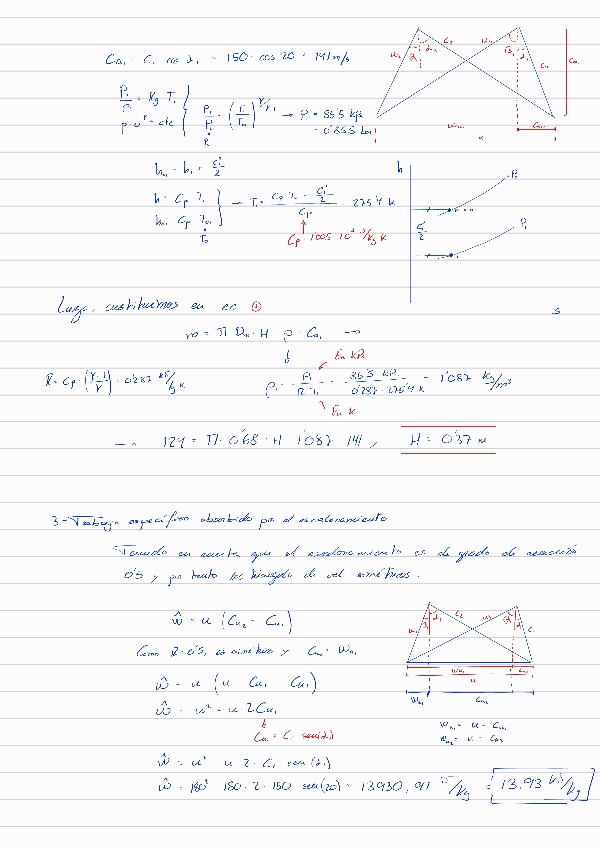 Ca₁ = C₁ cos α₁ = 150 · cos 20 = 141 m/s
P₁/ρ₁ = Rg T₁
P₁/P₀₁ = (T₁/T₀₁)^(γ/γ-1) → P₁ = 85'5 kPa
= 0'855 bar
h₀₁ - h₁ = C₁²/2
h₁ = Cp T₁
h₀₁ = Cp T₀₁
→ T₁ = (Cp T₀ - C₁²/2)/Cp = 275'4 K
Cp = 1'005 · 10³ J/kg K
Luego, sustituimos en ec ①
ṁ = Π · Dm · H · ρ · Ca₁ →
En kPa
R = Cp · (γ-1/γ) = 0'287 kJ/kg K
ρ₁ = P₁/R T₁ = 1'087 kg/m³
En K
→ 124 = Π · 0'68 · H · 1'087 · 141 , H = 0'37 m
3- Trabajo específico absorbido por el escalonamiento
Teniendo en cuenta que el escalonamiento es de grado de reacción
0'5 y por tanto los triángulos de vel simétricos.
ŵ = u (Cu₂ - Cu₁)
Como R=0'5, es simétrico y Cu₂ = Wu₁
ŵ = u (u - Cu₁ - Cu₁)
ŵ = u² - u · 2 Cu₁
Cu₁ = C₁ sen(α₁)
Wu₁ = u - Cu₁
Wu₂ = u - Cu₂
ŵ = u² - u · 2 · C₁ sen(α₁)
ŵ = 180² - 180 · 2 · 150 sen(20) = 13930,91 J/kg = 13,93 kJ/kg